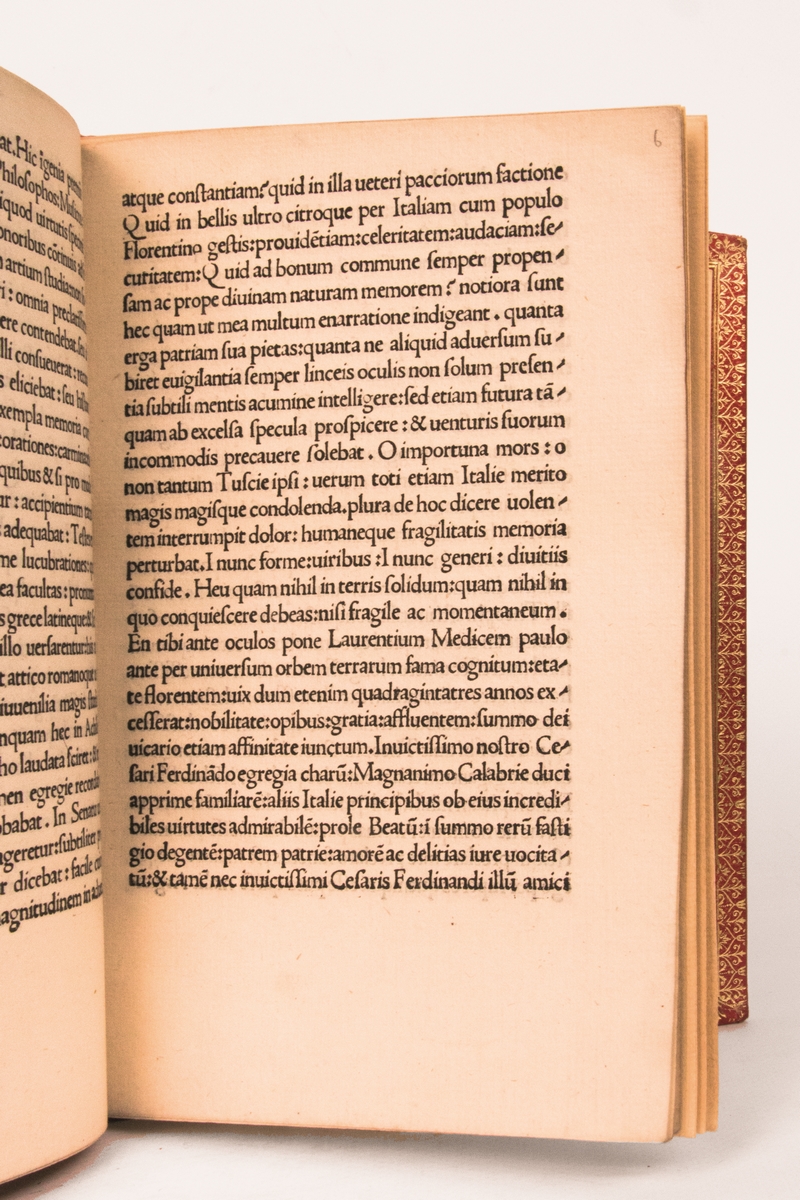 at.Hic īgenia
philosophos:
iquod uirtutis
onoribus
artium
i : omnia
ere contendebat
lli consueuerat:
s eliciebat : seu
exempla memoria
orationes:
quibus & si pro
ur : accipientium
adequabat :
me lucubrationes
ea facultas :
s grece
illo uersarentur:
t attico
iuuenilia magis
nquam hec in
ho laudata
men egregie
obabat . In
ageretur:
r dicebat : facile
agnitudinem in
6
atque conſtantiam:ʾquid in illa ueteri pacciorum factione
Quid in bellis ultro citroque per Italiam cum populo
Florentino geſtis:prouidētiam:celeritatem:audaciam:ſe⸗
curitatem:Quid ad bonum commune ſemper propen⸗
ſam ac prope diuinam naturam memorem ?ʾ notiora ſunt
hec quam ut mea multum enarratione indigeant . quanta
erga patriam ſua pietas:quanta ne aliquid aduerſum ſu⸗
biret euigilantia ſemper linceis oculis non ſolum preſen⸗
tia ſubtili mentis acumine intelligere:ſed etiam futura tā⸗
quam ab excelſa ſpecula proſpicere : & uenturis ſuorum
incommodis precauere ſolebat . O importuna mors : o
non tantum Tuſcie ipſi : uerum toti etiam Italie merito
magis magiſque condolenda.plura de hoc dicere uolen⸗
tem interrumpit dolor: humaneque fragilitatis memoria
perturbat.I nunc forme:uiribus :I nunc generi : diuitiis
confide . Heu quam nihil in terris ſolidum:quam nihil in
quo conquieſcere debeas:niſi fragile ac momentaneum .
En tibi ante oculos pone Laurentium Medicem paulo
ante per uniuerſum orbem terrarum fama cognitum:eta⸗
te florentem:uix dum etenim quadragintatres annos ex⸗
ceſſerat:nobilitate:opibus:gratia:affluentem:ſummo dei
uicario etiam affinitate iunctum.Inuictiſſimo noſtro Ce⸗
ſari Ferdināndo egregia charū:Magnanimo Calabrie duci
apprime familiarē:aliis Italie principibus ob eius incredi⸗
biles uirtutes admirabilē:prole Beatū:i ſummo rerū faſti
gio degentē:patrem patrie:amorē ac delitias iure uocita⸗
tū:& tamē nec inuictiſſimi Ceſaris Ferdinandi illū amici